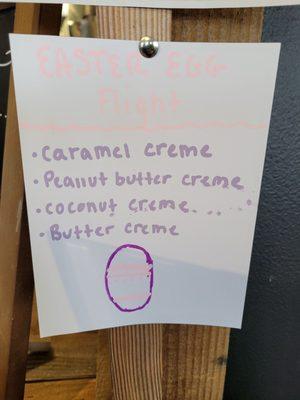 EASTER EGG
Flight
• Caramel creme
• Peanut butter creme
• coconut creme
• Butter creme